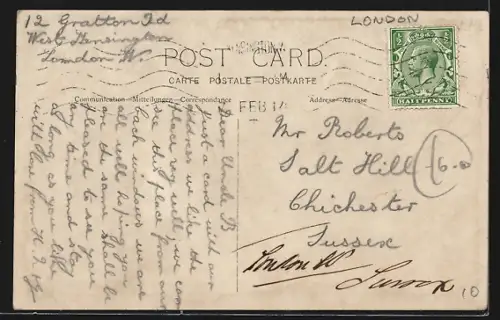 12 Gratton Rd
West Kensington
London W.
LONDON
POST CARD.
CARTE POSTALE POSTKARTE
Communication - Mitteilungen - Correspondance
Address - Adresse
FEB 14
HALFPENNY
Dear Uncle B
just a card with our
address we like the
place very well, we can
see this place from our
back windows we are
all well hoping you
are the same shall be
pleased to see you
any time and stay
as long as you like
with love from
Mr Roberts
Salt Hill
Chichester
Sussex
London W
Sussex
6-0
10